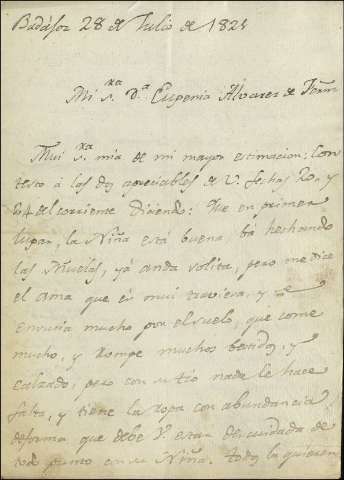 Badajoz 28 de Julio de 1824
Mi S.ra D.a Eugenia Álvarez de
Mui S.ra mia de mi mayor estimacion: Con
testo á las dos apreciables de V. fechas 20, y
24 del corriente Diciendo: Que en primer
lugar, la Niña está buena bá hechando
las Muelas, yá anda solita, pero me dice
el ama que és mui traviesa, y se
ensucia mucho por el suelo, que come
mucho, y rompe muchos bestidos, y
calzado; pero con su tio nada le hace
falta, y tiene la ropa con abundancia
deforma que debe V. estar descuidada de
todo punto con su Niña. todos la quieren